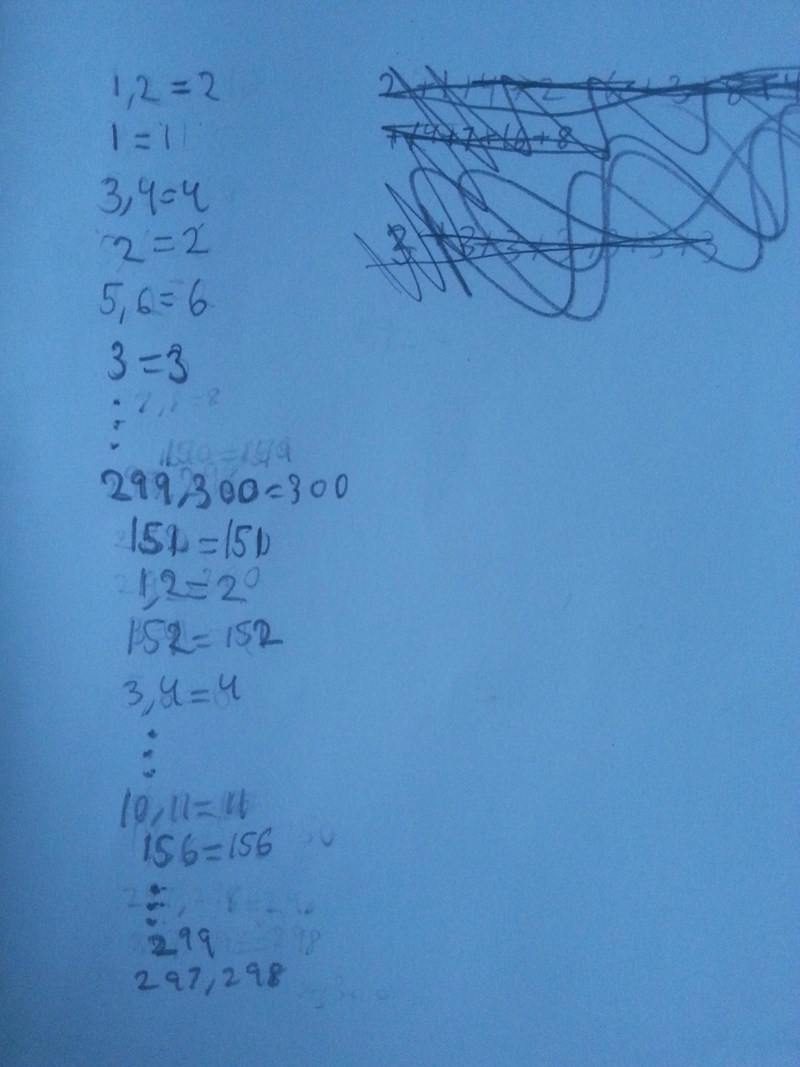 1,2=2
1=1
3,4=4
2=2
5,6=6
3=3
299,300=300
151=151
1,2=2
152=152
3,4=4
10,11=11
156=156
299
297,298